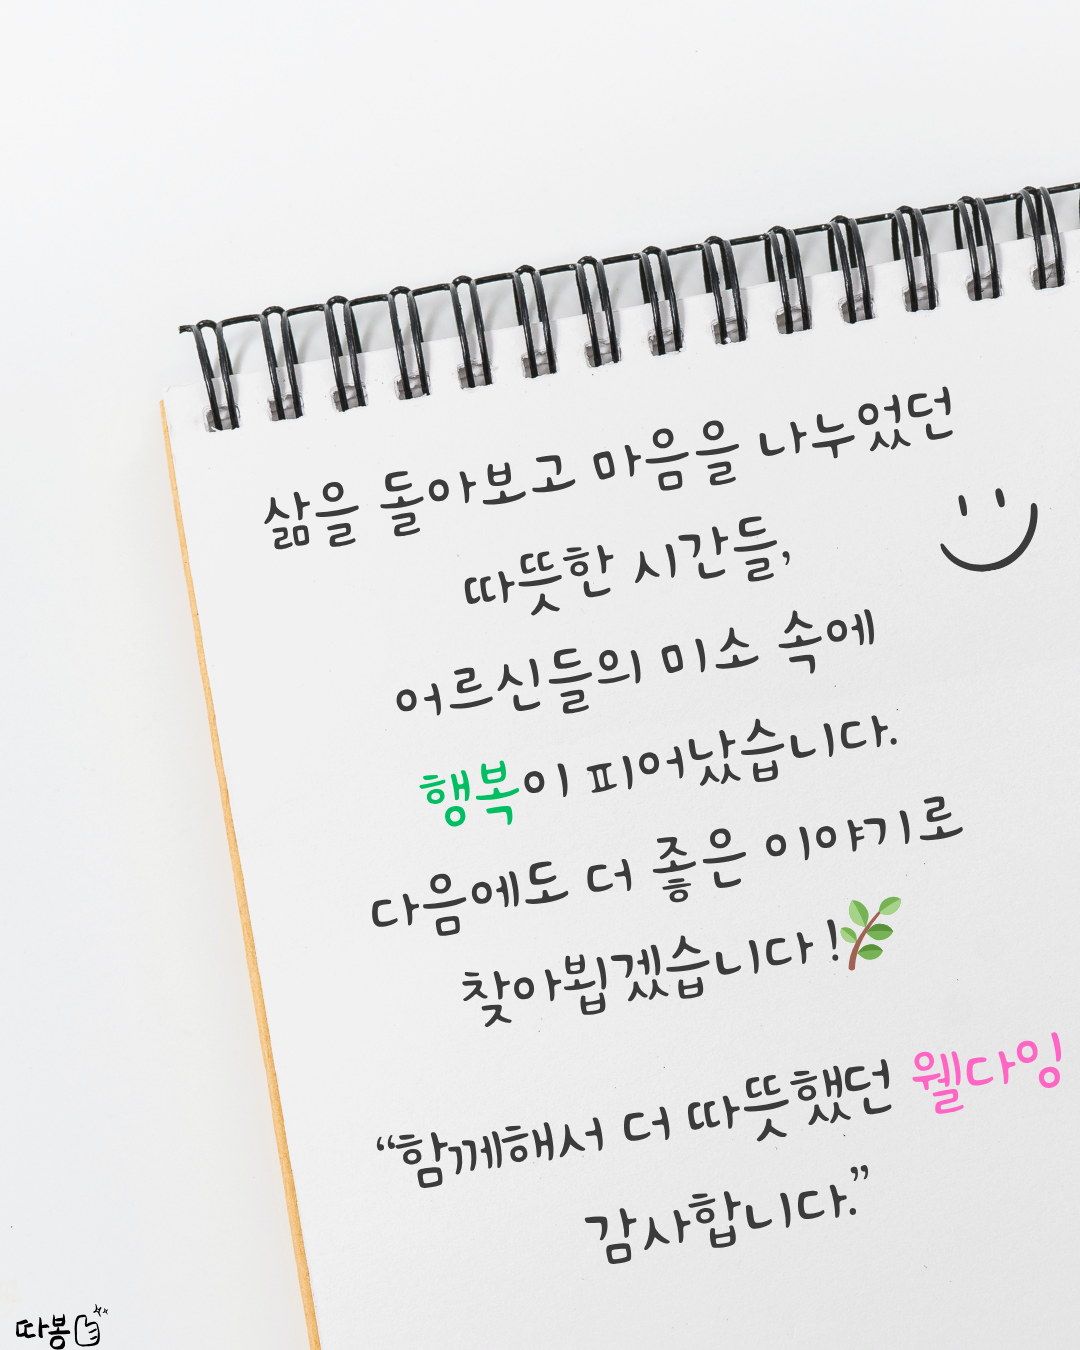 삶을 돌아보고 마음을 나누었던
따뜻한 시간들,
어르신들의 미소 속에
행복이 피어났습니다.
다음에도 더 좋은 이야기로
찾아뵙겠습니다!
“함께해서 더 따뜻했던 웰다잉
감사합니다.”
따봉